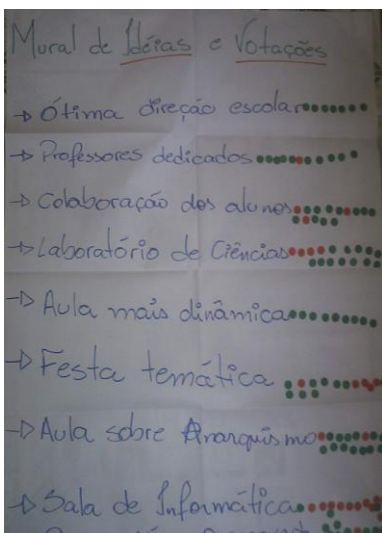 Mural de Idéias e Votações
→ Ótima direção escolar
→ Professores dedicados
→ Colaboração dos alunos
→ Laboratório de Ciências
→ Aula mais dinâmica
→ Festa temática
→ Aula sobre Anarquismo
→ Sala de Informática